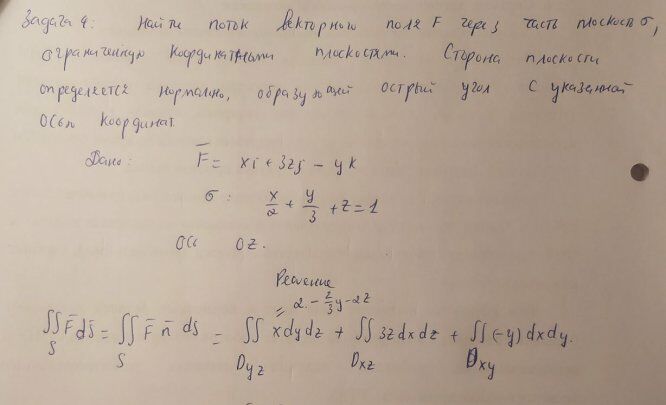 Задача 4: Найти поток векторного поля F через часть плоскости σ,
ограниченную координатными плоскостями. Сторона плоскости
определяется нормалью, образующей острый угол с указанной
осью координат.
Дано: F̅ = xi + 3zj - yk
σ: x/2 + y/3 + z = 1
ось OZ.
Решение
= 2 - 2/3y - 2z
∬_S F̅ds̅ = ∬_S F̅ n̅ ds = ∬_Dyz xdydz + ∬_Dxz 3zdxdz + ∬_Dxy (-y)dxdy.